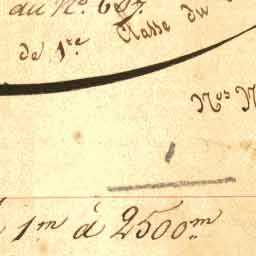 au No. 687.
de 1re Classe du
Nos N
1m à 2500m